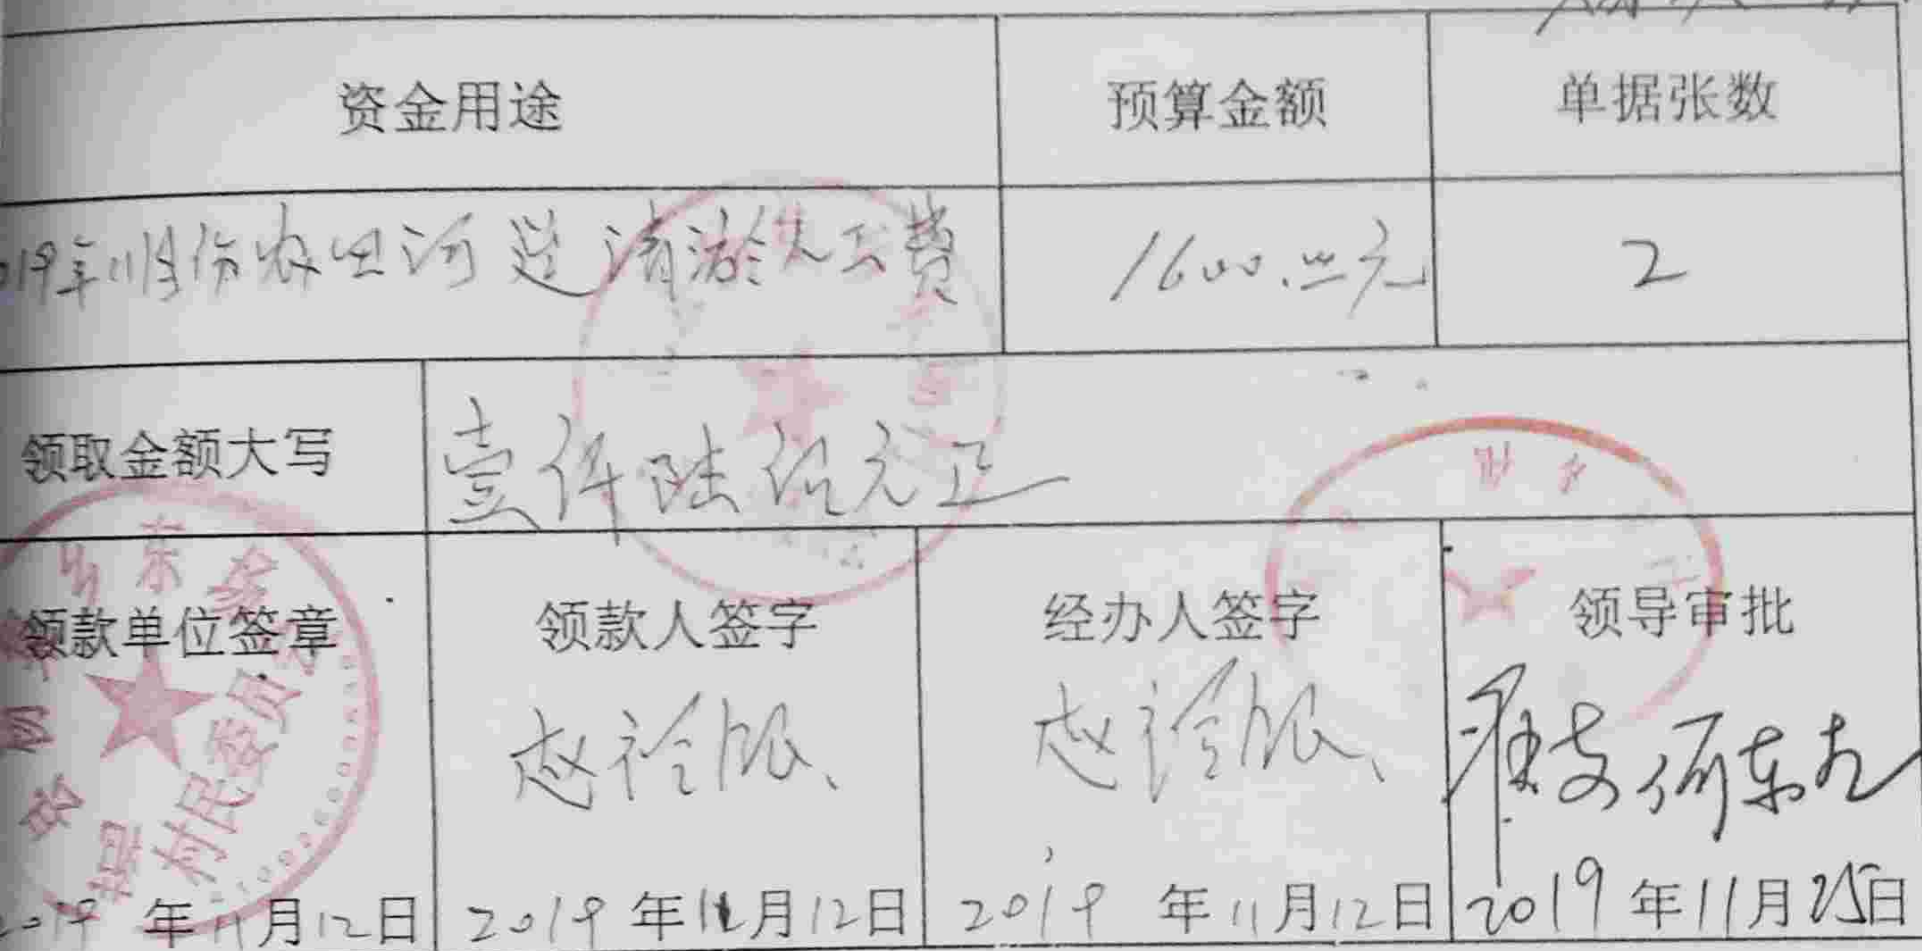 资金用途 预算金额 单据张数
019年11月份农田河道清淤人工费 1600.00元 2
领取金额大写 壹仟陆佰元正
领款单位签章 领款人签字 经办人签字 领导审批
村民委员会
准支 何东九
2019年11月12日 2019年11月12日 2019年11月12日 2019年11月25日